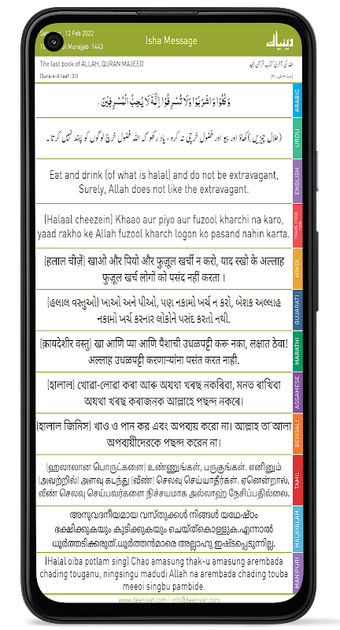 12 Feb 2022
Murajjab 1443
Isha Message
دینیات
The last book of ALLAH, QURAN MAJEED
(Sura-e-A'raaf : 31)
وَكُلُوْا وَاشْرَبُوْا وَلَا تُسْرِفُوْا اِنَّهٗ لَا يُحِبُّ الْمُسْرِفِيْنَ۔
ARABIC
(حلال چیزیں) کھاؤ اور پیو اور فضول خرچی نہ کرو، یاد رکھو کہ اللہ فضول خرچ لوگوں کو پسند نہیں کرتا۔
URDU
Eat and drink (of what is halal) and do not be extravagant,
Surely, Allah does not like the extravagant.
ENGLISH
(Halaal cheezein) Khaao aur piyo aur fuzool kharchi na karo,
yaad rakho ke Allah fuzool kharch logon ko pasand nahin karta.
(हलाल चीज़ें) खाओ और पियो और फुज़ूल खर्ची न करो, याद रखो के अल्लाह
फुज़ूल खर्च लोगों को पसंद नहीं करता ।
HINDI
(હલાલ વસ્તુઓ) ખાઓ અને પીઓ, પણ નકામો ખર્ચ ન કરો, બેશક અલ્લાહ
નકામો ખર્ચ કરનાર લોકોને પસંદ કરતો નથી.
GUJARATI
(क्रायदेशीर वस्तु) खा आणि प्या आणि पैशाची उधळपट्टी करू नका, लक्षात ठेवा!
अल्लाह उधळपट्टी करणाऱ्यांना पसंत करत नाही.
MARATHI
(হালাল) খোৱা-লোৱা কৰা আৰু অযথা খৰছ নকৰিবা, মনত ৰাখিবা
অযথা খৰছ কৰাজনক আল্লাহে পছন্দ নকৰে।
ASSAMESE
(হালাল জিনিস) খাও ও পান কর এবং অপব্যয় করো না। আল্লাহ তা'আলা
অপব্যয়ীদেরকে পছন্দ করেন না।
BENGALI
(ஹலாலான பொருட்களை) உண்ணுங்கள், பருகுங்கள். எனினும்
(அவற்றில்) அளவு கடந்து (வீண்) செலவு செய்யாதீர்கள். ஏனென்றால்,
வீண் செலவு செய்பவர்களை நிச்சயமாக அல்லாஹ் நேசிப்பதில்லை.
TAMIL
അനുവദനീയമായ വസ്തുക്കൾ നിങ്ങൾ യഥേഷ്ടം
ഭക്ഷിക്കുകയും കുടിക്കുകയും ചെയ്ത്കൊള്ളുക.എന്നാൽ
ധൂർത്തടിക്കരുത്.ധൂർത്തൻമാരെ അല്ലാഹു ഇഷ്ടപ്പെടുന്നില്ല.
MALAYALAM
(Halal oiba potlam sing) Chao amasung thak-u amasung arembada
chading touganu, ningsingu madudi Allah na arembada chading touba
meeoi singbu pambide.
MANIPURI
www.deeniyat.com | info@deeniyat.com